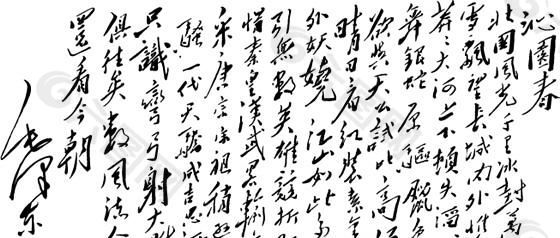 沁園春
北國風光千里冰封萬
雪飄望長城内外惟
莽〻大河上下頓失滔
舞銀蛇原驅臘象
欲與天公試比高須
晴日看紅裝素裹
外妖嬈江山如此多
引無數英雄競折
惜秦皇漢武畧輸
采唐宗宋祖稍遜
騷一代天驕成吉思
只識彎弓射大
俱往矣數風流人
還看今朝
毛澤东